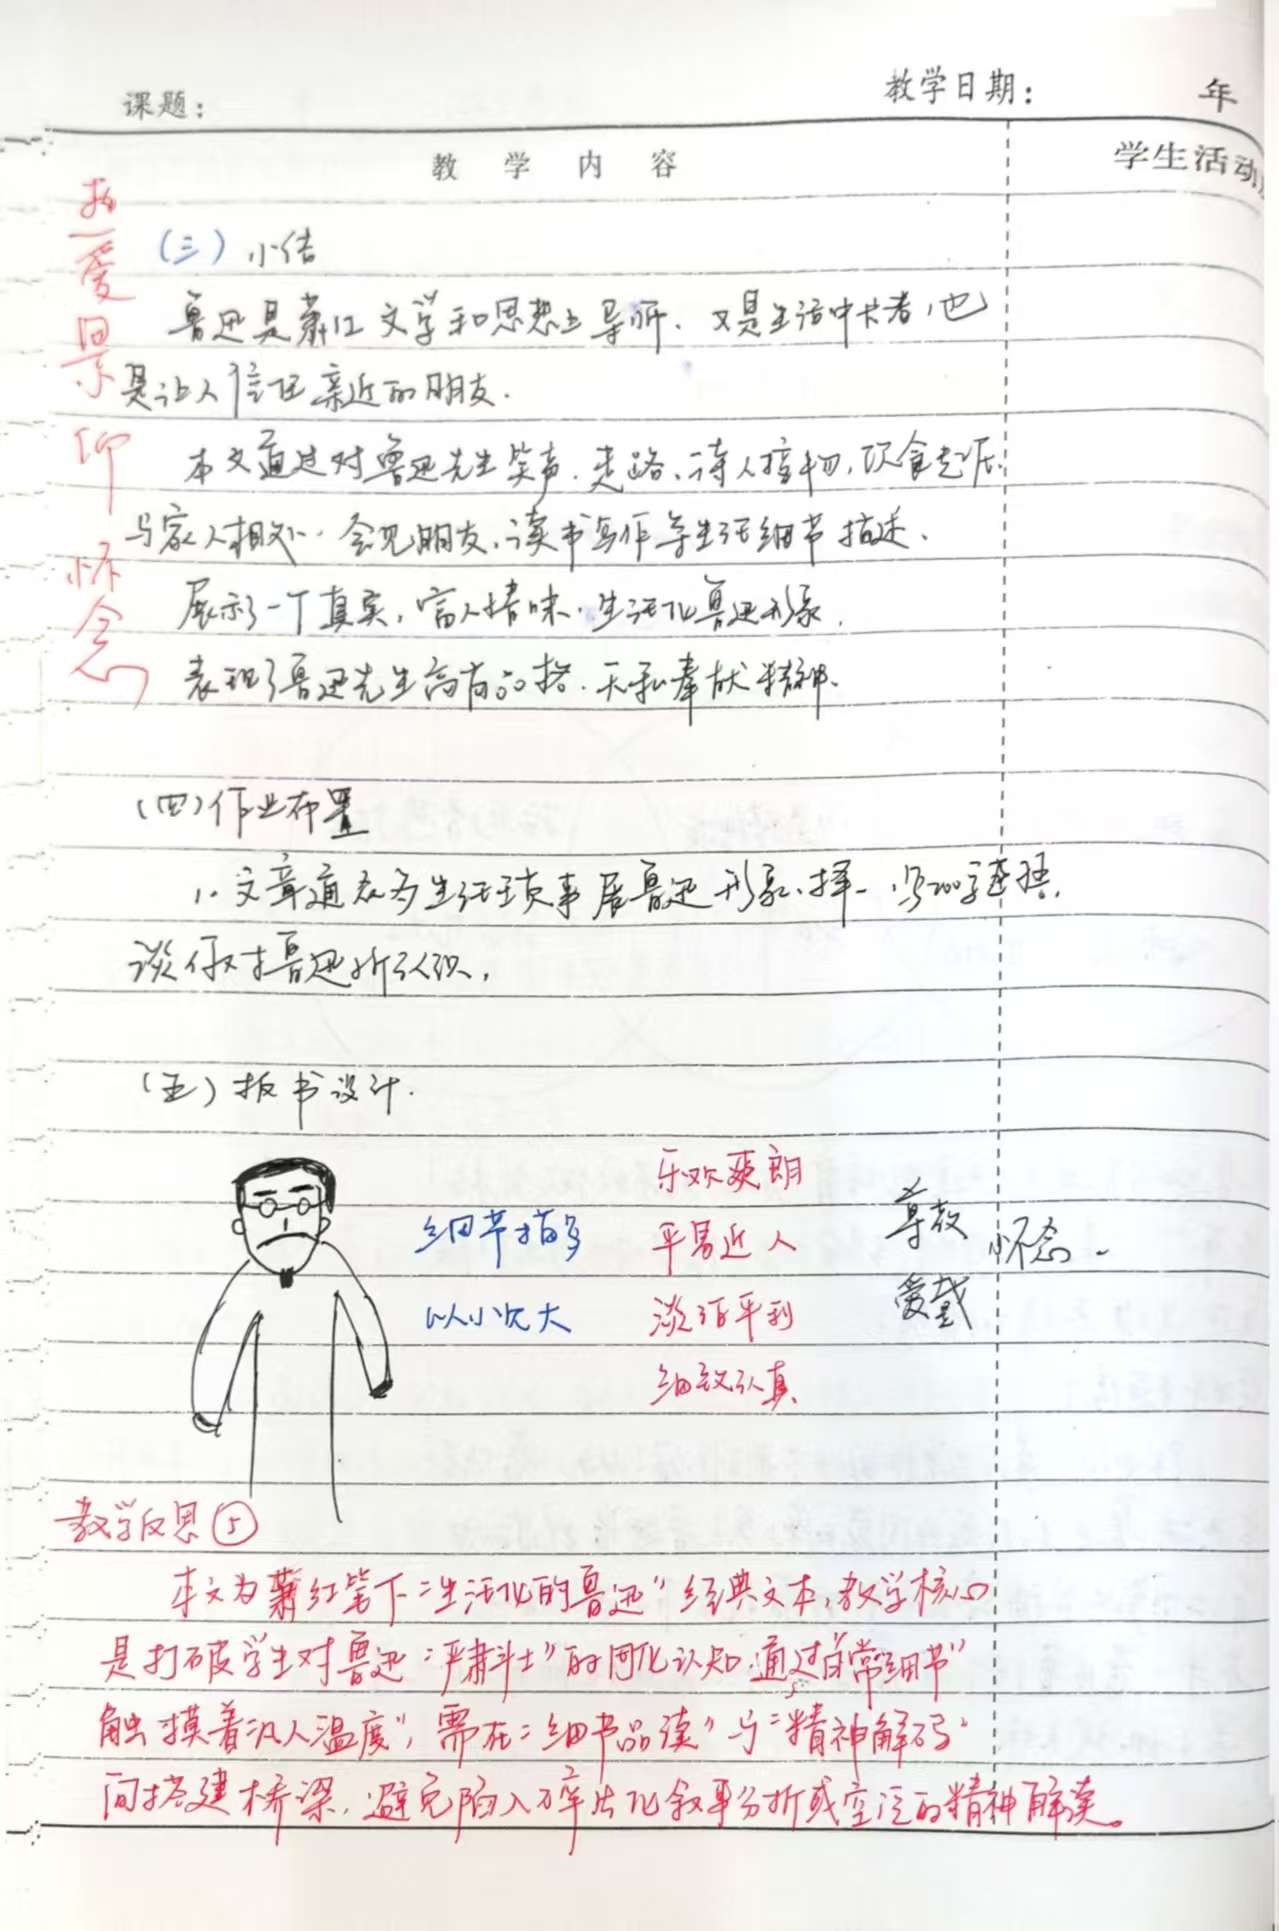 课题：
教学日期： 年
教 学 内 容
学生活动
热爱 景仰 怀念
（三）小结
鲁迅是萧红文学和思想上导师，又是生活中长者，也
是让人信任亲近的朋友.
本文通过对鲁迅先生笑声、走路、待人接物，饮食起居、
与家人相处、会见朋友、读书写作等生活细节描述、
展示了一个真实，富人情味、生活化鲁迅形象.
表现了鲁迅先生高尚品格、无私奉献精神.
（四）作业布置
1、文章通众多生活琐事展鲁迅形象、择一，写200字
谈你对鲁迅新认识.
（五）板书设计.
乐观爽朗
细节描写 平易近人 尊敬 怀念.
以小见大 淡泊平利 爱戴
细致认真
教学反思⑤
本文为萧红笔下“生活化的鲁迅”经典文本，教学核心
是打破学生对鲁迅“严肃斗士”的固化认知，通过“日常细节”
触摸着“凡人温度”，需在“细书品读”与“精神解码”
间搭建桥梁，避免陷入碎片化叙事分析或空泛的精神解读。